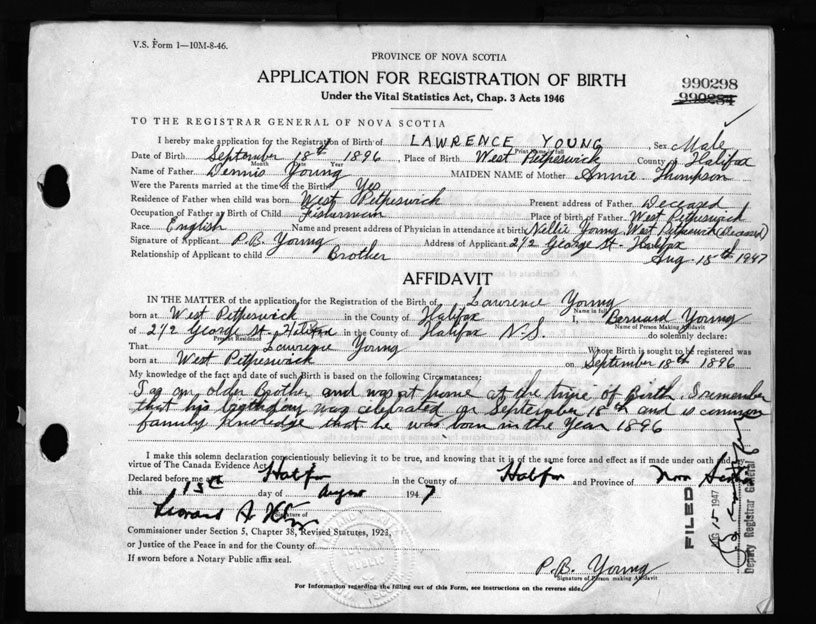 V.S. Form 1—10M-8-46.
PROVINCE OF NOVA SCOTIA
APPLICATION FOR REGISTRATION OF BIRTH
Under the Vital Statistics Act, Chap. 3 Acts 1946
990298
990284
TO THE REGISTRAR GENERAL OF NOVA SCOTIA
I hereby make application for the Registration of Birth of LAWRENCE YOUNG, Sex Male
Print Name in full
Date of Birth September 18th 1896, Place of Birth West Petpeswick County of Halifax
Month Date Year
Name of Father Dennis Young MAIDEN NAME of Mother Annie Thompson
Were the Parents married at the time of the Birth? Yes
Residence of Father when child was born West Petpeswick Present address of Father Deceased
Occupation of Father at Birth of Child Fisherman Place of birth of Father West Petpeswick
Race English Name and present address of Physician in attendance at birth Nellie Young West Petpeswick (Deceased)
Signature of Applicant P.B. Young Address of Applicant 2 1/2 George St. Halifax
Relationship of Applicant to child Brother Aug. 15th 1947
AFFIDAVIT
IN THE MATTER of the application for the Registration of the Birth of Lawrence Young
Name in full
born at West Petpeswick in the County of Halifax I, Bernard Young
Name of Person Making Affidavit
of 2 1/2 George St. Halifax in the County of Halifax N.S. do solemnly declare:
Present Residence
That Lawrence Young Whose Birth is sought to be registered was
born at West Petpeswick on September 18th 1896
My knowledge of the fact and date of such Birth is based on the following Circumstances:
I am older Brother and was at home at the time of Birth. I remember
that his birthday was celebrated on September 18th and is common
family knowledge that he was born in the Year 1896
I make this solemn declaration conscientiously believing it to be true, and knowing that it is of the same force and effect as if made under oath and by
virtue of The Canada Evidence Act.
Declared before me at Halifax in the County of Halifax and Province of Nova Scotia
this 15th day of August 1947
Signature of
Commissioner under Section 5, Chapter 38, Revised Statutes, 1923,
or Justice of the Peace in and for the County of
If sworn before a Notary Public affix seal.
P.B. Young
Signature of Person making Affidavit
For Information regarding the filling out of this Form, see instructions on the reverse side.
FILED
AUG 15 1947
Deputy Registrar General